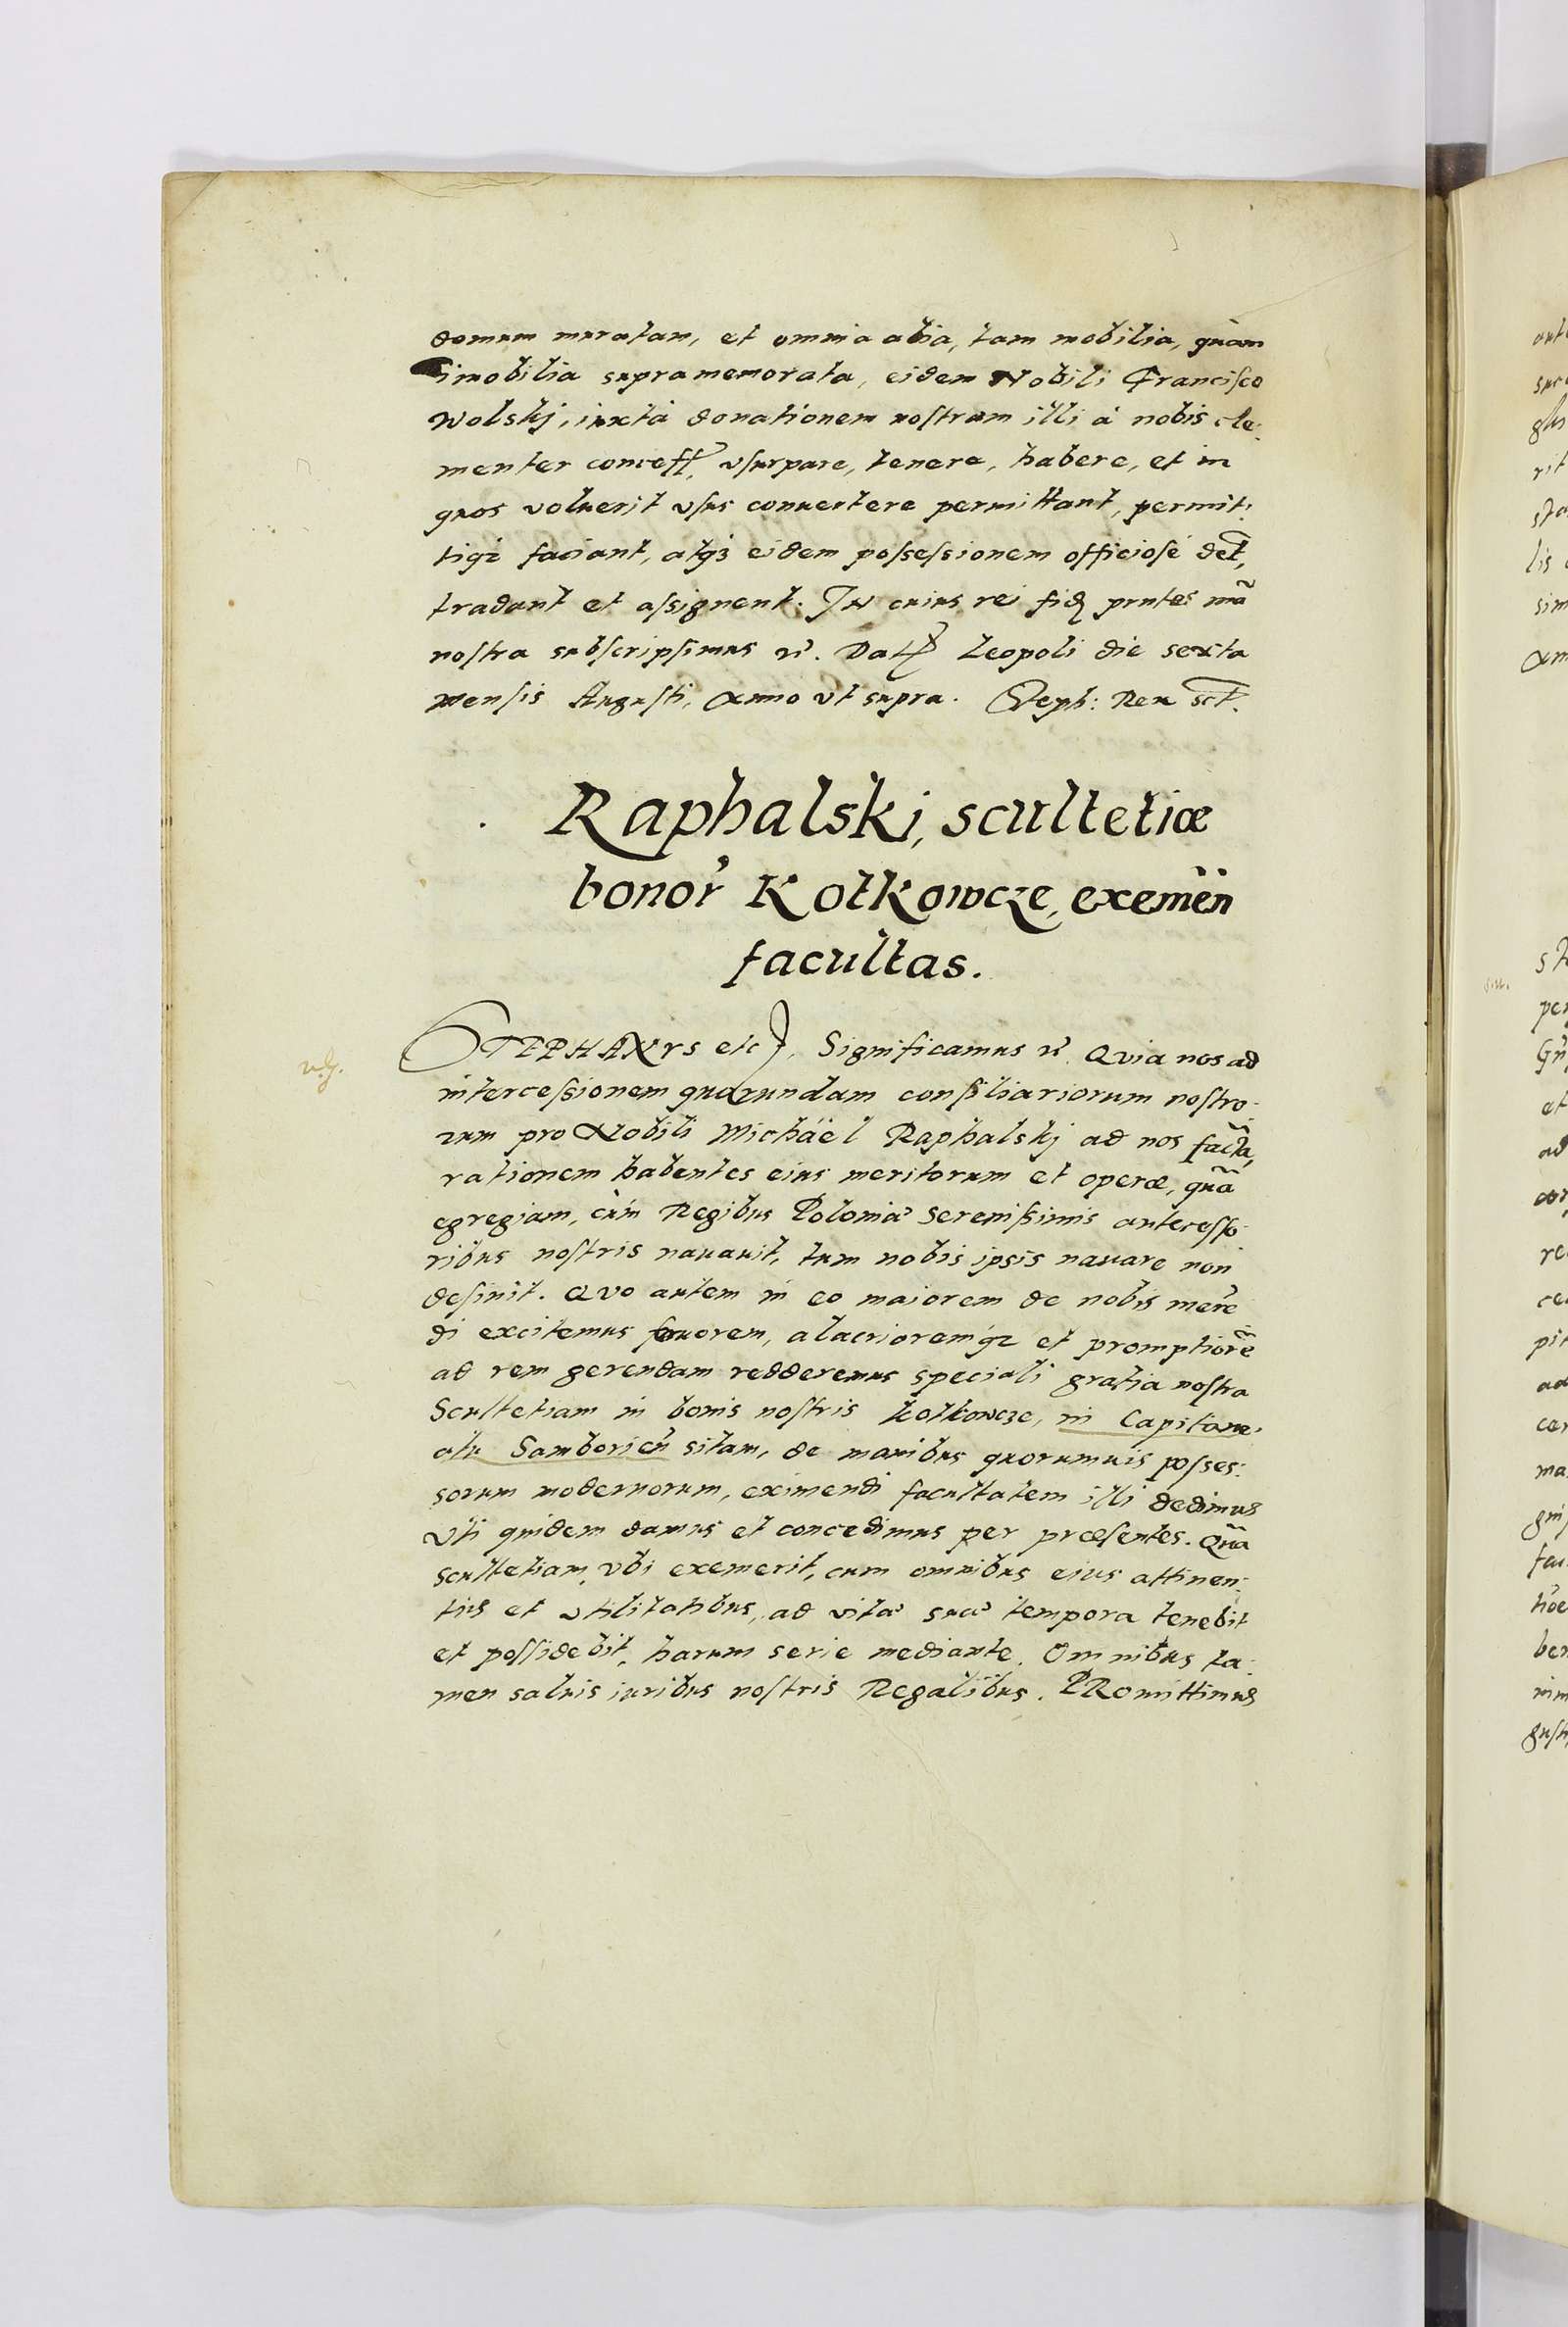 domum muratam, et omnia alia, tam mobilia, quàm
imobilia supramemorata, eidem Nobili Francisco
Wolskj, iuxtà donationem nostram illi à nobis cle-
menter concess, vsurpare, tenere, habere, et in
quos voluerit vsus conuertere permittant, permit-
tiq; faciant, atq; eidem possessionem officiosé det,
tradant et assignent. In cuius rei fid prntes mã
nostra subscripsimus etc. Dat Leopoli die sexta
mensis Augusti, Anno vt supra. Steph: Rex sct.
Raphalskj, scultetiæ
bonor Kotkowcze, eximen
facultas.
STEPHANVS etc. Significamus etc. Quia nos ad
intercessionem quarundam consiliariorum nostro-
rum pro Nobili Michäel Raphalskj ad nos factã,
rationem habentes eius meritorum et operæ, quã
egregiam, cùm Regibus Poloniæ Serenissimis antecesso-
ribus nostris nauauit, tum nobis ipsis nauare non
desinit. Quo autem in eo maiorem de nobis mere
di excitemus feruorem, alacrioremq; et promptiorẽ
ad rem gerendam redderemus speciali gratia nostra
Scultetiam in bonis nostris Kotkowcze, in Capitane-
atu Samborien sitam, de manibus quorumuis posses-
sorum modernorum, eximendi facultatem illi dedimus
Vti quidem damus et concedimus per præsentes. Quã
scultetiam, vbi exemerit, cum omnibus eius attinen-
tiis et vtilitatibus, ad vitæ suæ tempora tenebit
et possidebit, harum serie mediante. Omnibus ta-
men saluis iuribus nostris Regalibus. PRomittimus